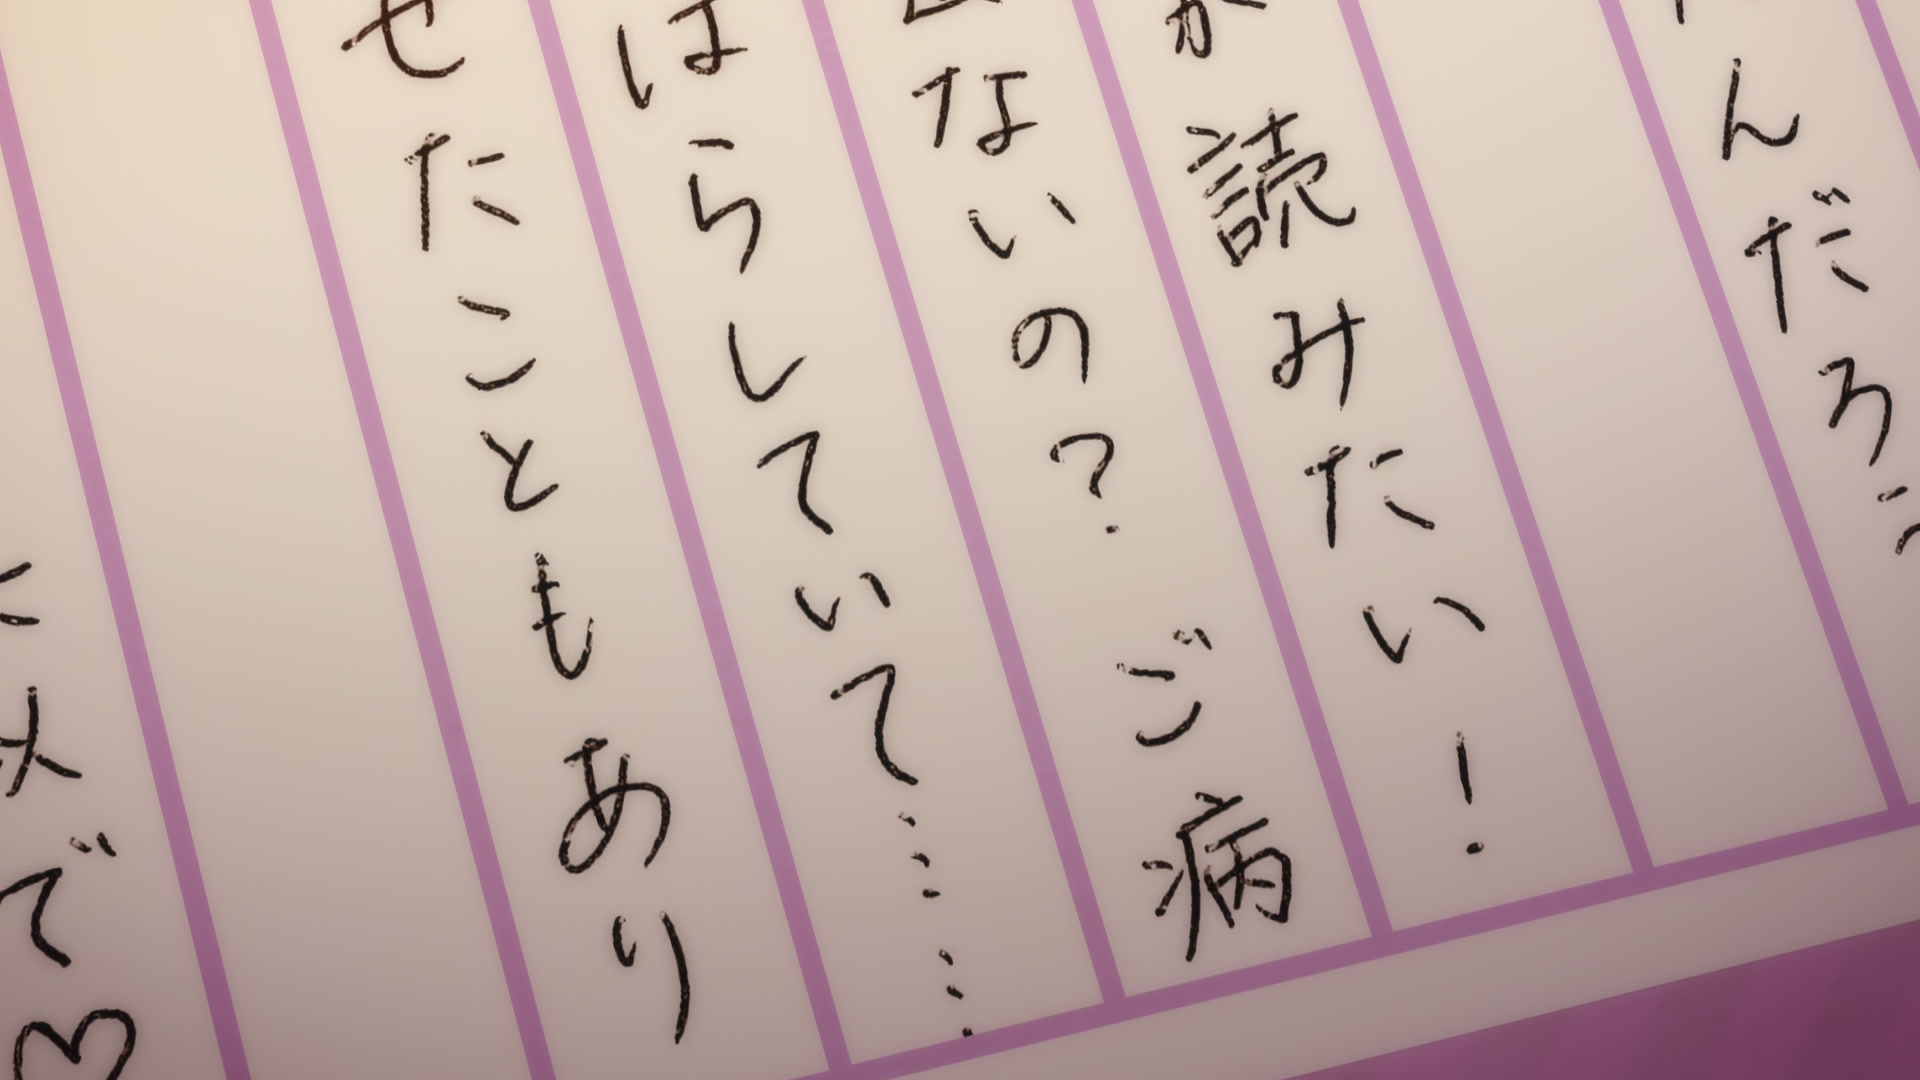 んだろう
が読みたい！
ないの？　ご病
はらしていて……
せたこともあり
こメで♡